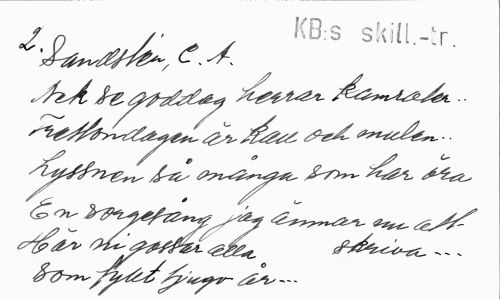 KB:s skill.-tr.
2. Sandstén, C. A.
Nek se goddag herrar kamrater..
Trettondagen är kall och mulen..
Lyssnen så många som har öra
En sorgesång jag ämnar nu att
skriva ---
Här ni gossar alla
som fyllt tjugo år ---